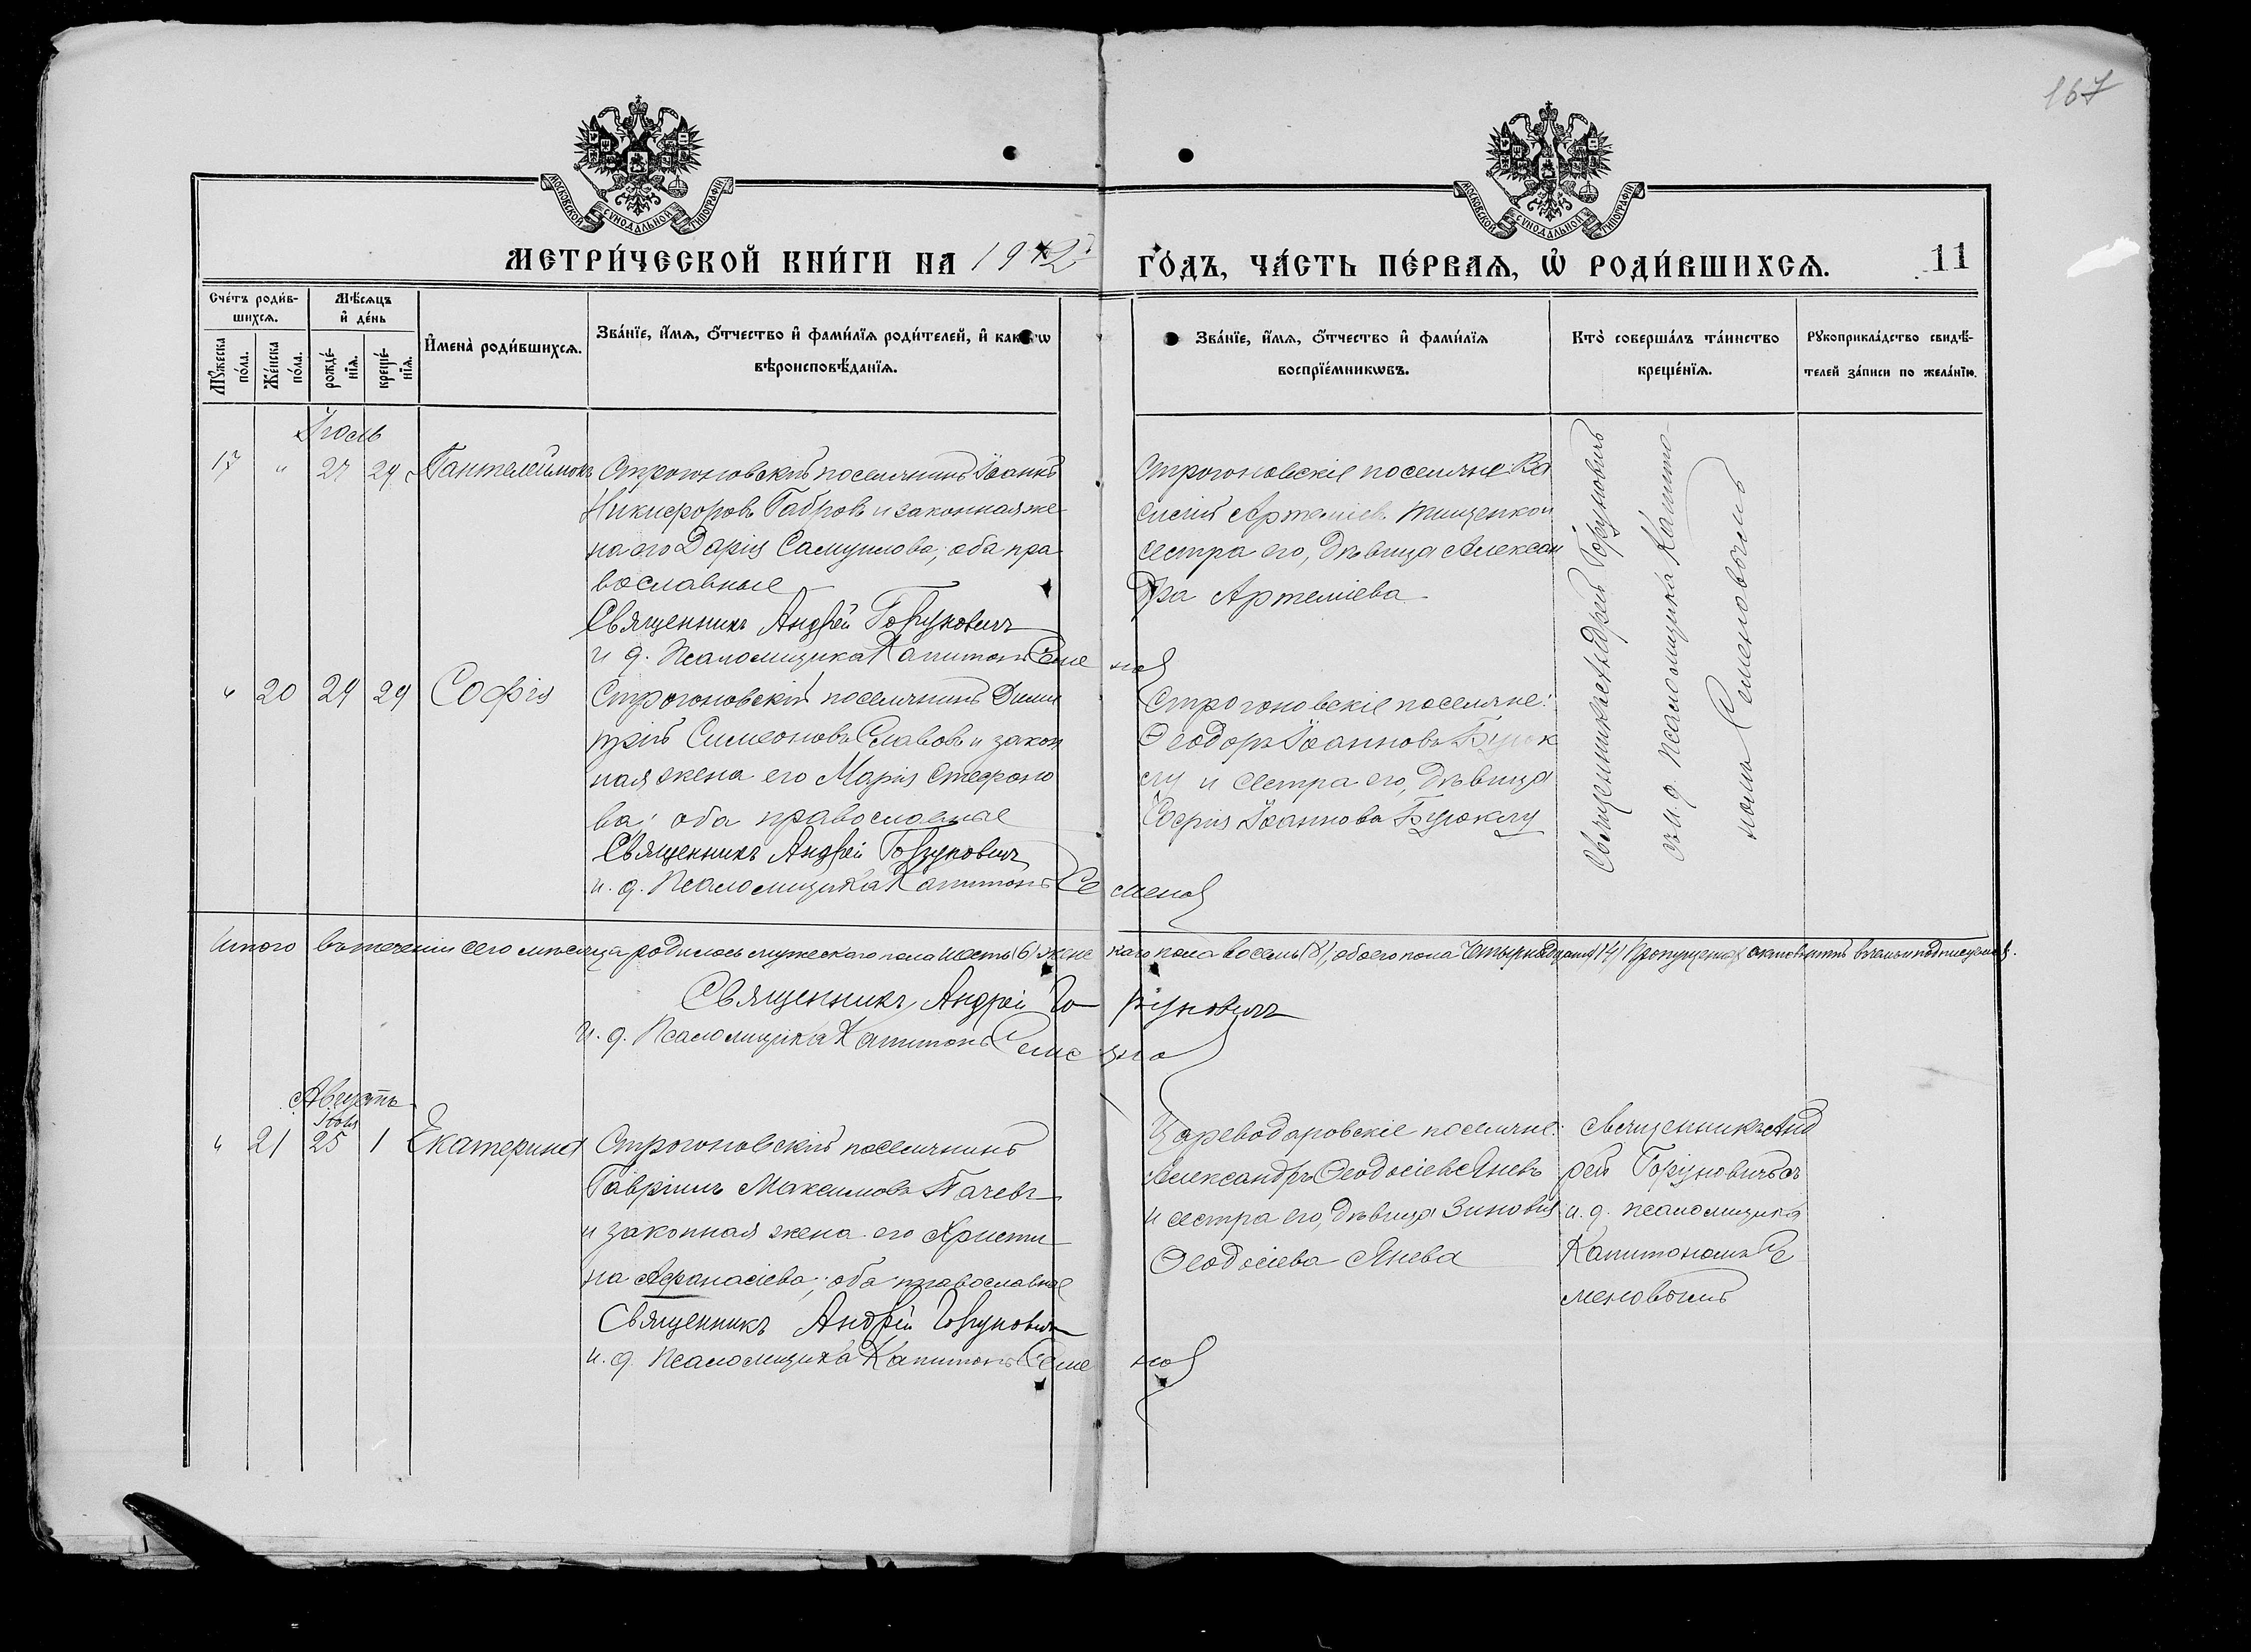 167
МОСКОВСКОЙ СѴНОДАЛЬНОЙ ТИПОГРАФІИ
МОСКОВСКОЙ СѴНОДАЛЬНОЙ ТИПОГРАФІИ
МЕТРИ́ЧЕСКОЙ КНИ́ГИ НА 1912
ГО́ДЪ, ЧА́СТЬ ПЕ́РВАѦ, Ѡ҆ РОДИ́ВШИХСѦ.
11
Сче́тъ роди́в-
шихсѧ.
Мꙋ́жеска по́ла.
Же́нска по́ла.
Мѣ́сѧцъ
и҆ де́нь
рожде́-
нїѧ.
креще́-
нїѧ.
И҆мена̀ роди́вшихсѧ.
Зва́нїе, и҆́мѧ, ѻ҆́тчество и҆ фами́лїѧ роди́телей, и҆ какогѡ
вѣроисповѣ́данїѧ.
Зва́нїе, и҆́мѧ, ѻ҆́тчество и҆ фами́лїѧ
воспрїе́мникѡвъ.
Кто̀ соверша́лъ та́инство
креще́нїѧ.
Рꙋкоприкла́дство свидѣ́-
телей за́писи по жела́нїю.
Іюль
17 " 27 29 Пантелеймонъ
Строгоновскій поселянинъ Іоаннъ
Никифоровъ Габровъ и законная же
на его Дарія Самуилова, оба пра
вославные
Священникъ Андрей Горуновичъ
и д. Псаломщика Капитонъ Семе нов
Строгоновскіе поселяне: Ва
силій Артеміев Тищенко и
сестра его, дѣвица Алексан
дра Артеміева
Священникъ Андрей Горуновичъ
съ и. д. псаломщика Капито-
номъ Семеновымъ
" 20 29 29 Софія
Строгоновскій поселянинъ Дими
трій Симеоновъ Славовъ и закон
ная жена его Марія Стефано
ва; оба православные
Священникъ Андрей Горуновичъ
и. д. Псаломщика Капитонъ Се менов
Строгоновскіе поселяне:
Ѳеодоръ Іоанновъ Бурук
лу и сестра его, дѣвица
Софія Іоаннова
Итого въ теченіи сего мѣсяца родилось мужескаго пола шесть (6) женс каго пола восемь (8), обоего пола четырнадцать (14)
Священникъ Андрей Го руновичъ
и. д. Псаломщика Капитонъ Семе но
Августъ
Іюля
" 21 25 1 Екатерина
Строгоновскій поселянинъ
Гавріилъ Максимовъ Пачевъ
и законная жена его Христи
на Афанасіева, оба православные
Священникъ Андрей Горуновичъ
и. д. Псаломщика Капитонъ Семе нов
Цареводаровскіе поселяне:
Александръ Ѳеодосіевъ Яневъ
и сестра его, дѣвица Зиновія
Ѳеодосіева Янева
Священникъ Анд
рей Горуновичъ съ
и. д. псаломщика
Капитономъ Се
меновымъ